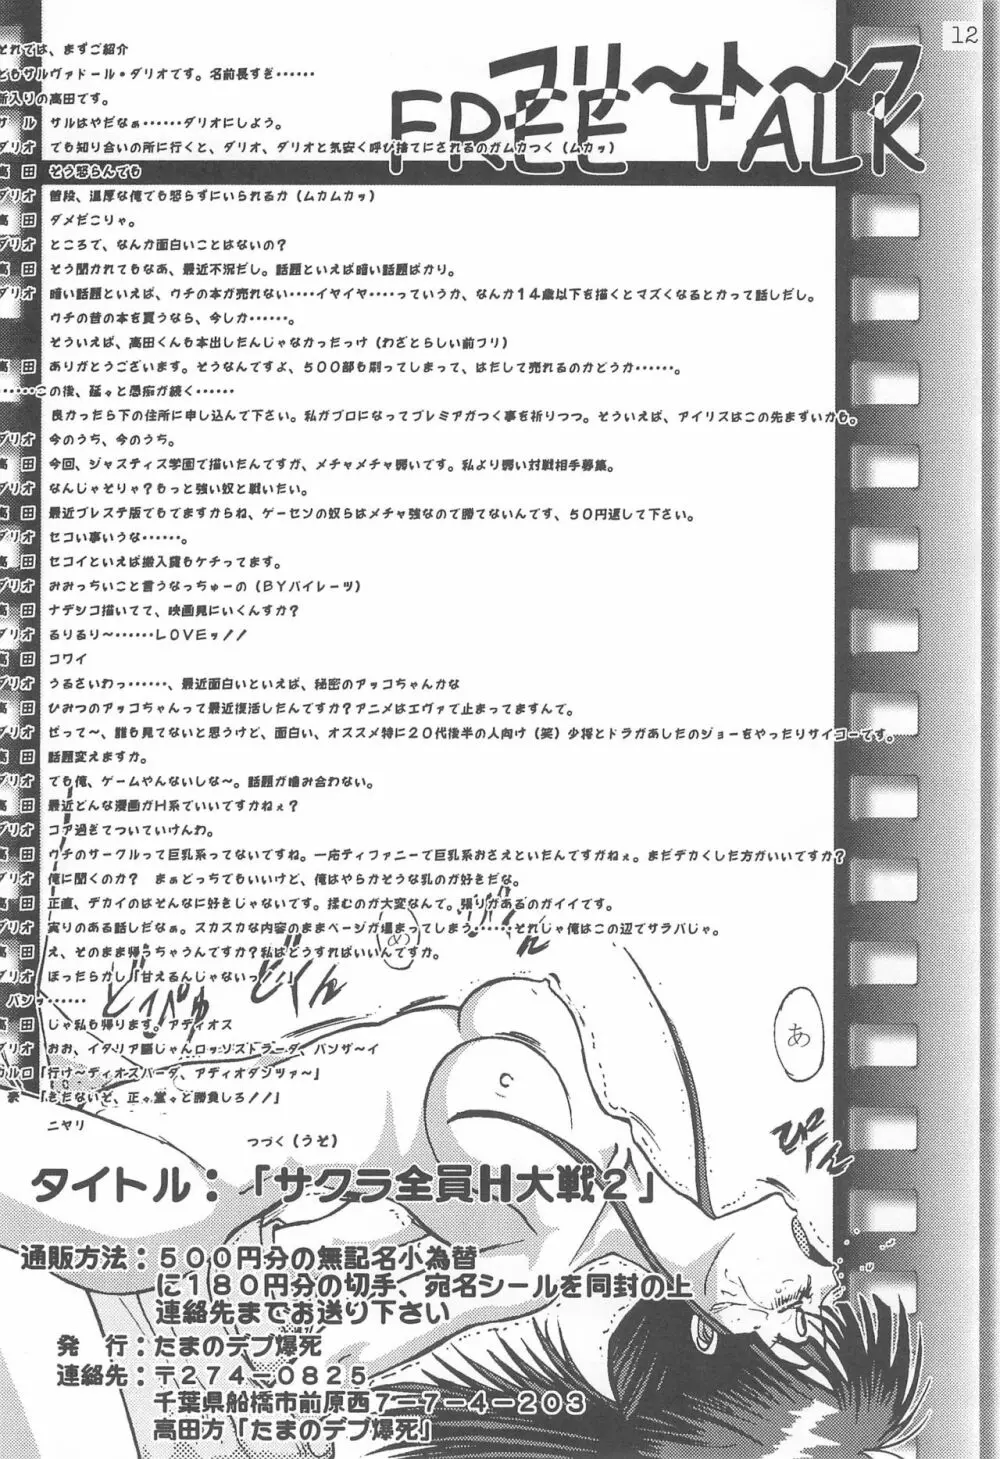 12
フリ〜ト〜ク
FREE TALK
それでは、まずご紹介
どもサルヴァドール・ダリオです。名前長すぎ……
新入りの高田です。
サル サルはやだなぁ……ダリオにしよう。
ダリオ でも知り合いの所に行くと、ダリオ、ダリオと気安く呼び捨てにされるのがムカつく（ムカッ）
高田 そう怒らんでも
ダリオ 普段、温厚な俺でも怒らずにいられるか（ムカムカッ）
高田 ダメだこりゃ。
ダリオ ところで、なんか面白いことはないの？
高田 そう聞かれてもなあ、最近不況だし。話題といえば暗い話題ばかり。
ダリオ 暗い話題といえば、ウチの本が売れない‥‥イヤイヤ‥‥っていうか、なんか１４歳以下を描くとマズくなるとかって話しだし。
ウチの昔の本を買うなら、今しか……。
そういえば、高田くんも本出したんじゃなかっだっけ（わざとらしい前フリ）
高田 ありがとうございます。そうなんですよ、５００部も刷ってしまって、はだして売れるのかどうか……。
……この後、延々と愚痴が続く……
良かったら下の住所に申し込んで下さい。私がプロになってプレミアがつく事を祈りつつ。そういえば、アイリスはこの先まずいかも。
ダリオ 今のうち、今のうち。
高田 今回、ジャスティス学園で描いだんですが、メチャメチャ弱いです。私より弱い対戦相手募集。
ダリオ なんじゃそりゃ？もっと強い奴と戦いだい。
高田 最近プレステ版もでてますからね、ゲーセンの奴らはメチャ強なので勝てないんです、５０円返して下さい。
ダリオ セコい事いうな……。
高田 セコイといえば搬入費もケチってます。
ダリオ みみっちいこと言うなっちゅーの（ＢＹパイレーツ）
高田 ナデシコ描いてて、映画見にいくんすか？
ダリオ るりるり〜……ＬＯＶＥッ！！
高田 コワイ
ダリオ うるさいわっ……、最近面白いといえば、秘密のアッコちゃんかな
高田 ひみつのアッコちゃんって最近復活しだんですか？アニメはエヴァで止まってますんで。
ダリオ ぜって〜、誰も見てないと思うけど、面白い、オススメ特に２０代後半の人向け（笑）少将とドラがあしたのジョーをやったりサイコーです。
高田 話題変えますか。
ダリオ でも俺、ゲームやんないしな〜。話題が噛み合わない。
高田 最近どんな漫画がＨ系でいいですかねぇ？
ダリオ コア過ぎてついていけんわ。
高田 ウチのサークルって巨乳系ってないですね。一応ティファニーで巨乳系おさえといだんですがねぇ。まだデカくした方がいいですか？
ダリオ 俺に聞くのか？ まぁどっちでもいいけど、俺はやらかそうな乳のが好きだな。
高田 正直、デカイのはそんなに好きじゃないです。揉むのが大変なんで。張りがあるのがイイです。
ダリオ 実りのある話しだなぁ。スカスカな内容のままページが埋まってしまう……それじゃ俺はこの辺でサラバじゃ。
高田 え、そのまま帰っちゃうんですか？私はどうすればいいんですか。
ダリオ ほったらかし「甘えるんじゃないっ！！」
バンッ……
高田 じゃ私も帰ります。アディオス
ダリオ おお、イタリア語じゃんロッソストラーダ、バンザ〜イ
カルロ「行け〜ディオスパーダ、アディオダンツァ〜」
豪「きだないぞ、正々堂々と勝負しろ！！」
ニヤリ
つづく（うそ）
め
あ
タイトル：「サクラ全員Ｈ大戦２」
通販方法：５００円分の無記名小為替
に１８０円分の切手、宛名シールを同封の上
連絡先までお送り下さい
発 行：たまのデブ爆死
連絡先：〒２７４－０８２５
千葉県船橋市前原西７－７－４－２０３
高田方「たまのデブ爆死」